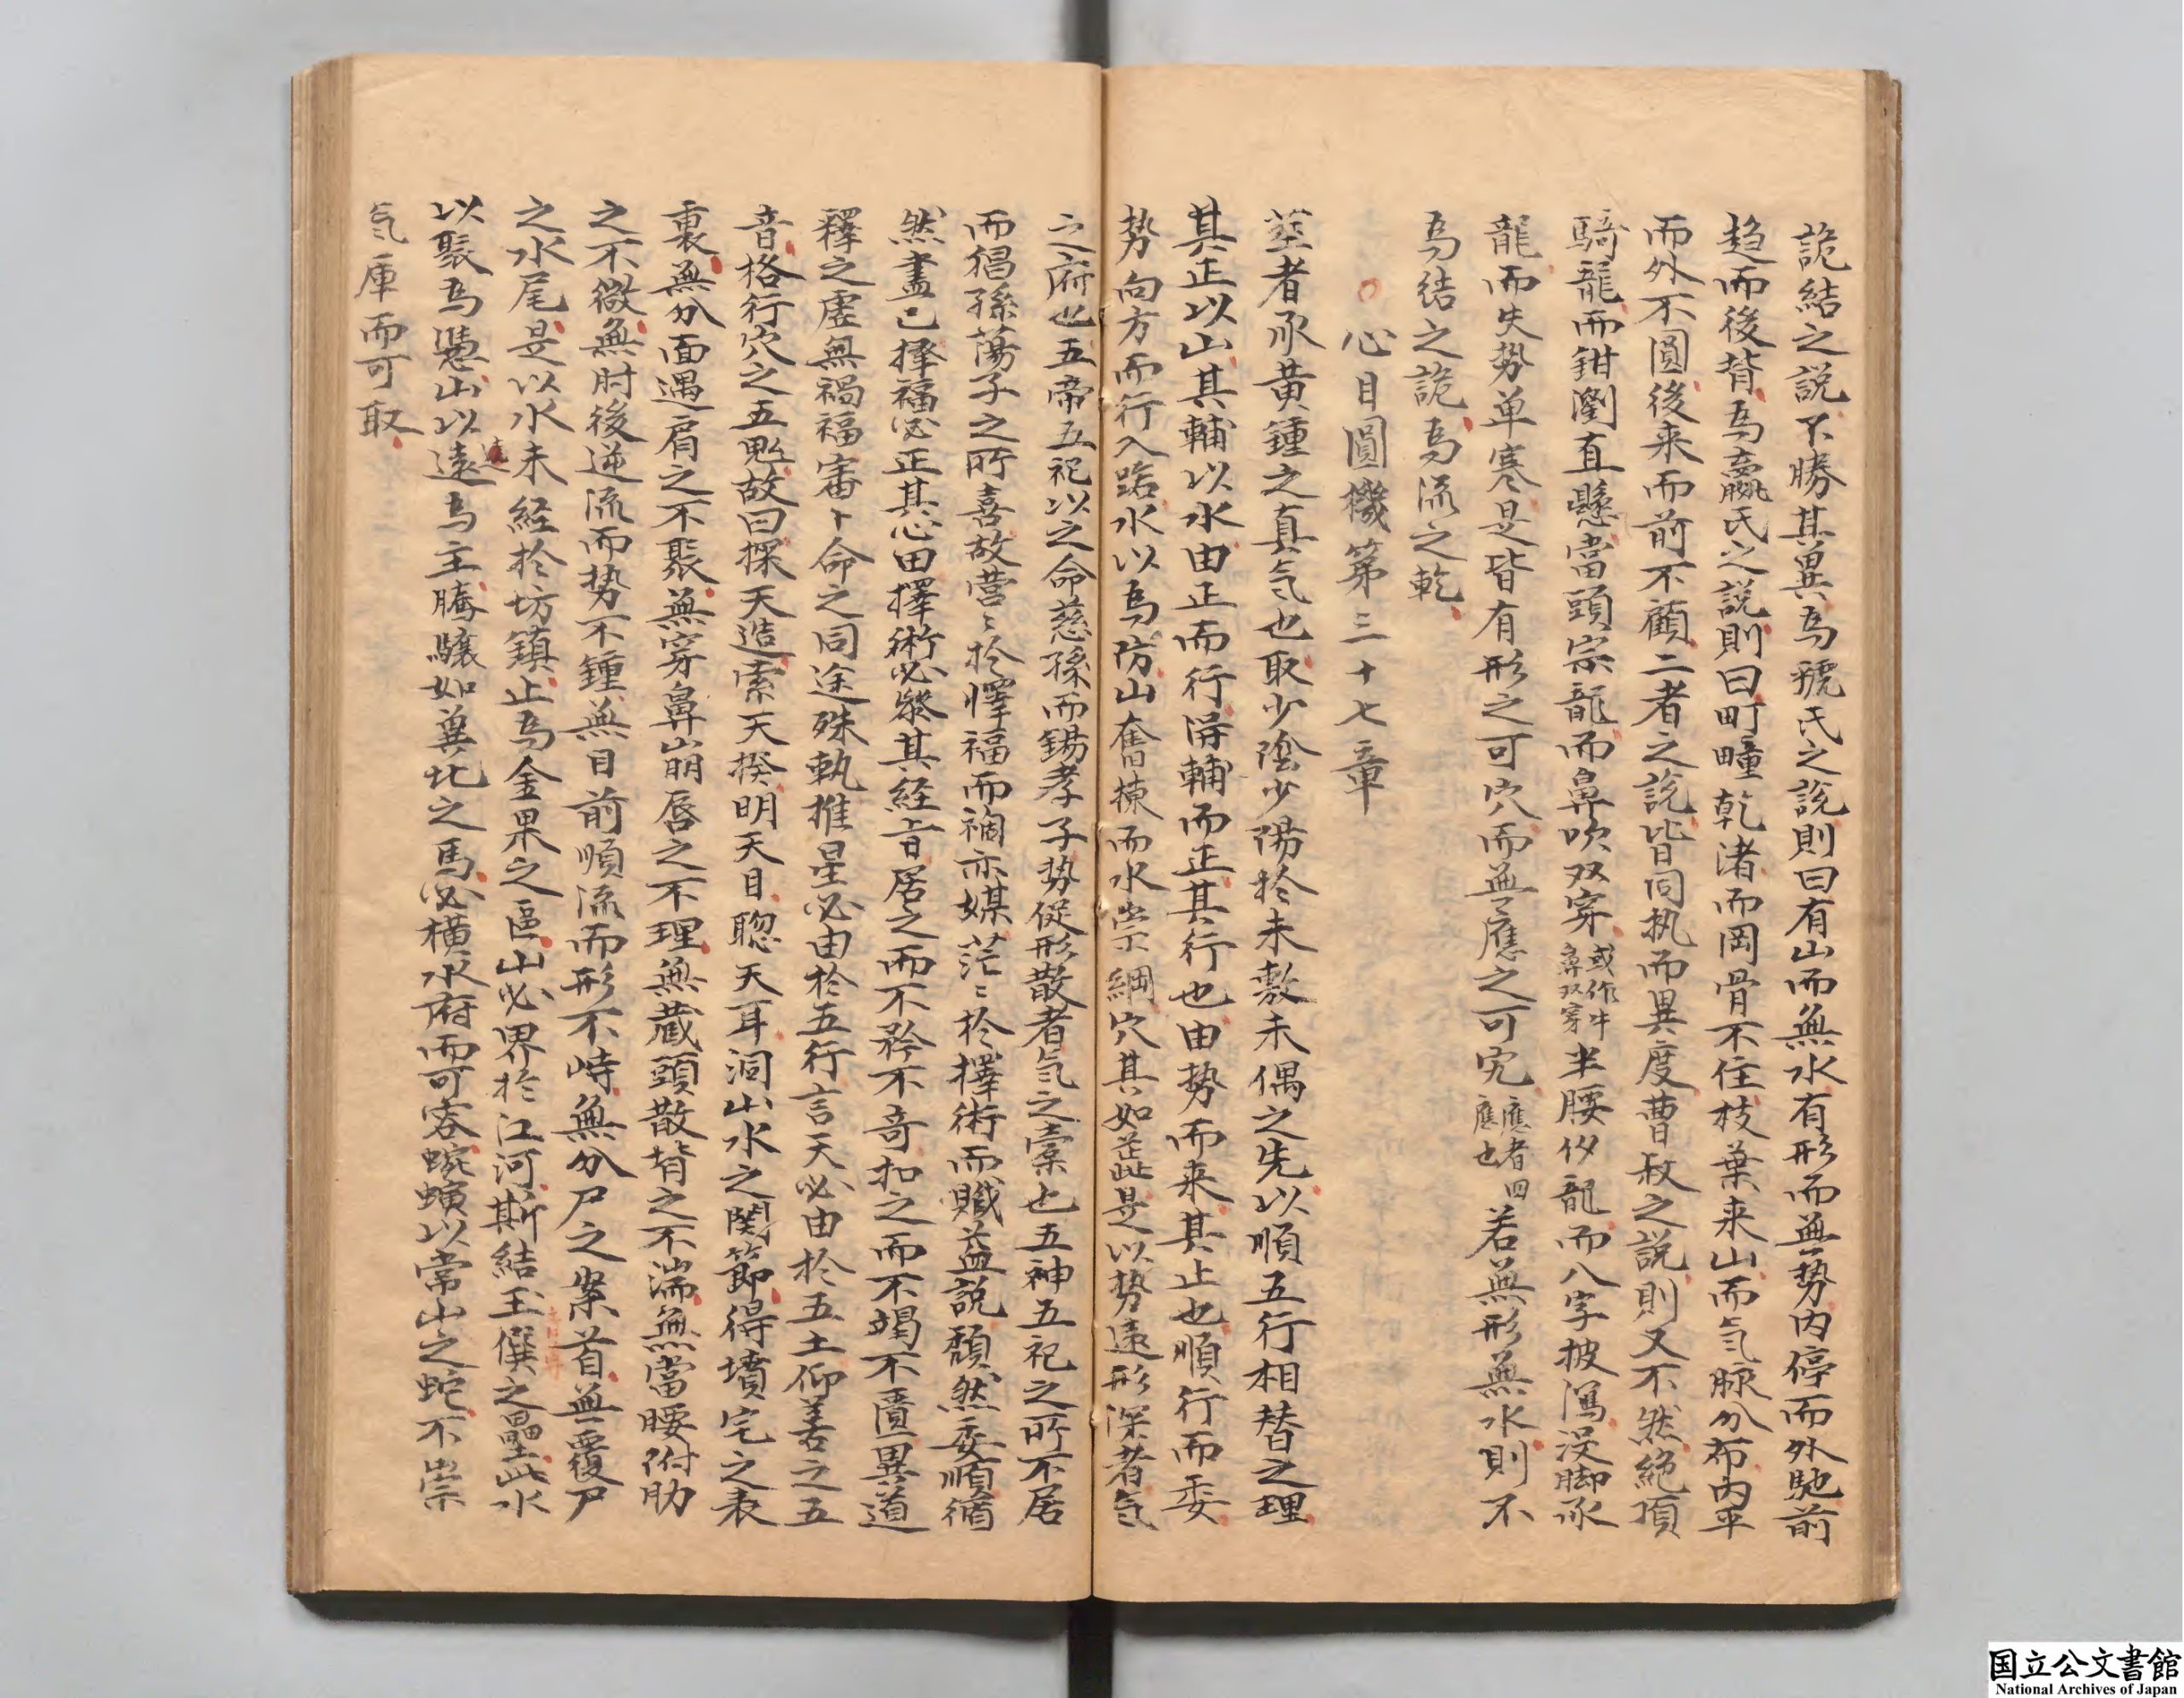 詭結之説不勝其異為虢氏之説則曰有山而無水有形而無勢内停而外馳前
趋而後背為嬴氏之説則曰町疃乾渚而岡骨不住枝葉来山而气脉分布内平
而外不圓後来而前不顧二者之説皆同执而異度曹叔之説則又不然絶頂
騎龍而鉗瀏直懸當頭宗龍而鼻吹双穿或作牛鼻双穿半腰仢龍而八字披瀉没脚承
龍而失势单寒是皆有形之可穴而無應之可究應者四應也若無形無水則不
為結之詭為流之乾
心目圓機第三十七章
塟者承黄鍾之真气也取少陰少陽於未敷未偶之先以順五行相替之理
其正以山其輔以水由正而行得輔而正其行也由势而来其止也順行而委
势向方而行入踏水以為防山奮棟而水崇綱穴其如茈是以势遠形深者气
之府也五帝五祀以之命慈孫而錫孝子势促形散者气之橐也五神五祀之所不居
而猖孫蕩子之所喜故营〻於懌福而禍亦媒茫〻於擇術而贼益説頽然委順循
然盡已择福必正其心田擇術必黎其経旨居之而不矜不奇扣之而不竭不匱異道
釋之虚無禍福審卜命之同途殊軌推星必由於五行言天必由於五土仰善之五
音格行穴之五鬽故曰探天造索天揆明天目聰天耳洞山水之関節得墳宅之表
裏無分面遇肩之不聚無穿鼻崩唇之不理無蔵頭散背之不湍無當腰附肋
之不微無肘後逆流而势不鍾無目前順流而形不峙無分尸之案首無覆尸
之水尾是以水未経於坊鎮止為金果之區山必界於江河斯結玉僎之壘此水
以聚為慿山以遠為主騰驤如兾北之馬必横水府而可容蜿蟥以常山之蛇不崇
气庫而可取
国立公文書館
National Archives of Japan